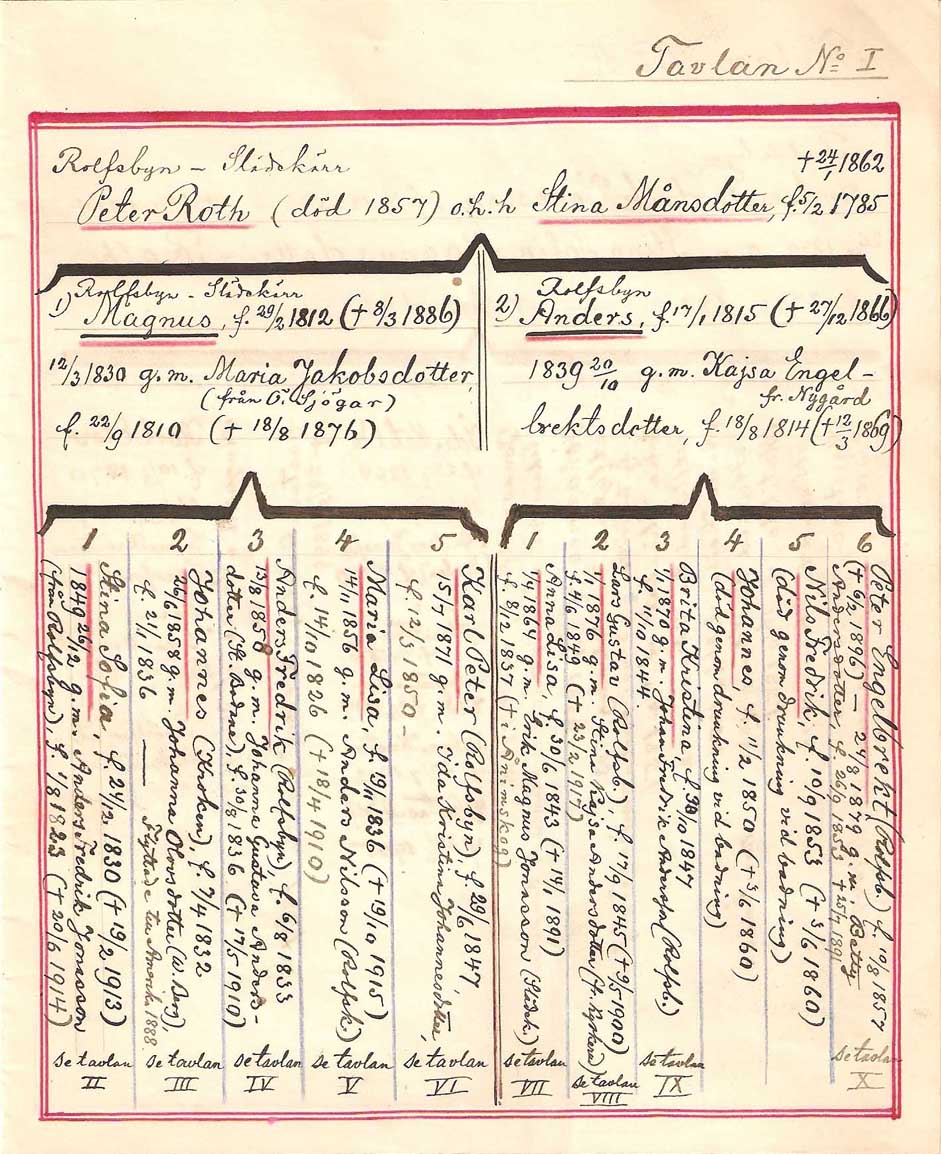 Tavlan No I
Rolfsbyn – Slädekärr
+ 24/1 1862
Peter Roth (död 1857) o.h.h Stina Månsdotter, f. 5/2 1785
Rolfsbyn - Slädekärr
1) Magnus, f. 29/2 1812 († 8/3 1886)
12/3 1830 g.m. Maria Jakobsdotter,
(från Ö. Sjögar)
f. 22/9 1810 († 18/8 1876)
Rolfsbyn
2) Anders, f. 17/1 1815 († 27/12 1866)
1839 20/10 g.m. Kajsa Engel-
fr. Nygård
brektsdotter, f. 18/8 1814 († 12/3 1869)
1
Stina Sofia, f. 24/12 1830 († 19/2 1913)
1849 26/12 g.m. Anders Fredrik Jonasson
(från Rolfsbyn), f. 1/8 1823 († 20/6 1914)
se tavlan
II
2
Johannes (Kroken), f. 7/4 1832
26/6 1858 g.m. Johanna Olovsdotter (V. Berg)
f. 21/1 1836 — Flyttade till Amerika 1888
se tavlan
III
3
Anders Fredrik (Rolfsbyn), f. 6/8 1833
13/8 1858 g.m. Johanna Gustava Anders-
dotter (St. Bodane), f. 30/8 1836 († 17/5 1910)
se tavlan
IV
4
Maria Lisa, f. 19/11 1836 († 19/10 1915)
14/11 1856 g.m. Anders Nilsson (Rolfsb.)
f. 14/10 1826 († 18/4 1910)
se tavlan
V
5
Karl Peter (Rolfsbyn), f. 29/6 1847,
15/7 1871 g.m. Ida Kristina Johannesdotter,
f. 12/3 1850 –
se tavlan
VI
1
Anna Lisa, f. 30/6 1843 († 14/1 1891)
1/4 1864 g.m. Erik Magnus Jonasson (Slädek.)
f. 8/12 1837 († i Ånimskog)
se tavlan
VII
2
Lars Gustav (Rolfsb.), f. 17/9 1845 († 9/5 1900)
1/1 1876 g.m. Stina Kajsa Andersdotter
f. 4/6 1849 († 23/2 1917)
se tavlan
VIII
3
Brita Kristina, f. 30/10 1847
1/1 1870 g.m. Johan Fredrik Andersson (Rolfsb.)
f. 11/10 1844.
se tavlan
IX
4
Johannes, f. 11/2 1850 († 3/6 1860)
(död genom drunkning vid badning)
5
Nils Fredrik, f. 19/9 1853 († 3/6 1860)
(död genom drunkning vid badning)
6
Peter Engelbrekt (Rolfsb.) f. 10/8 1857
(† 6/2 1896) – 24/8 1879 g.m. Betty
Andersdotter, f. 26/9 1853 † 25/7 1891
se tavlan
X